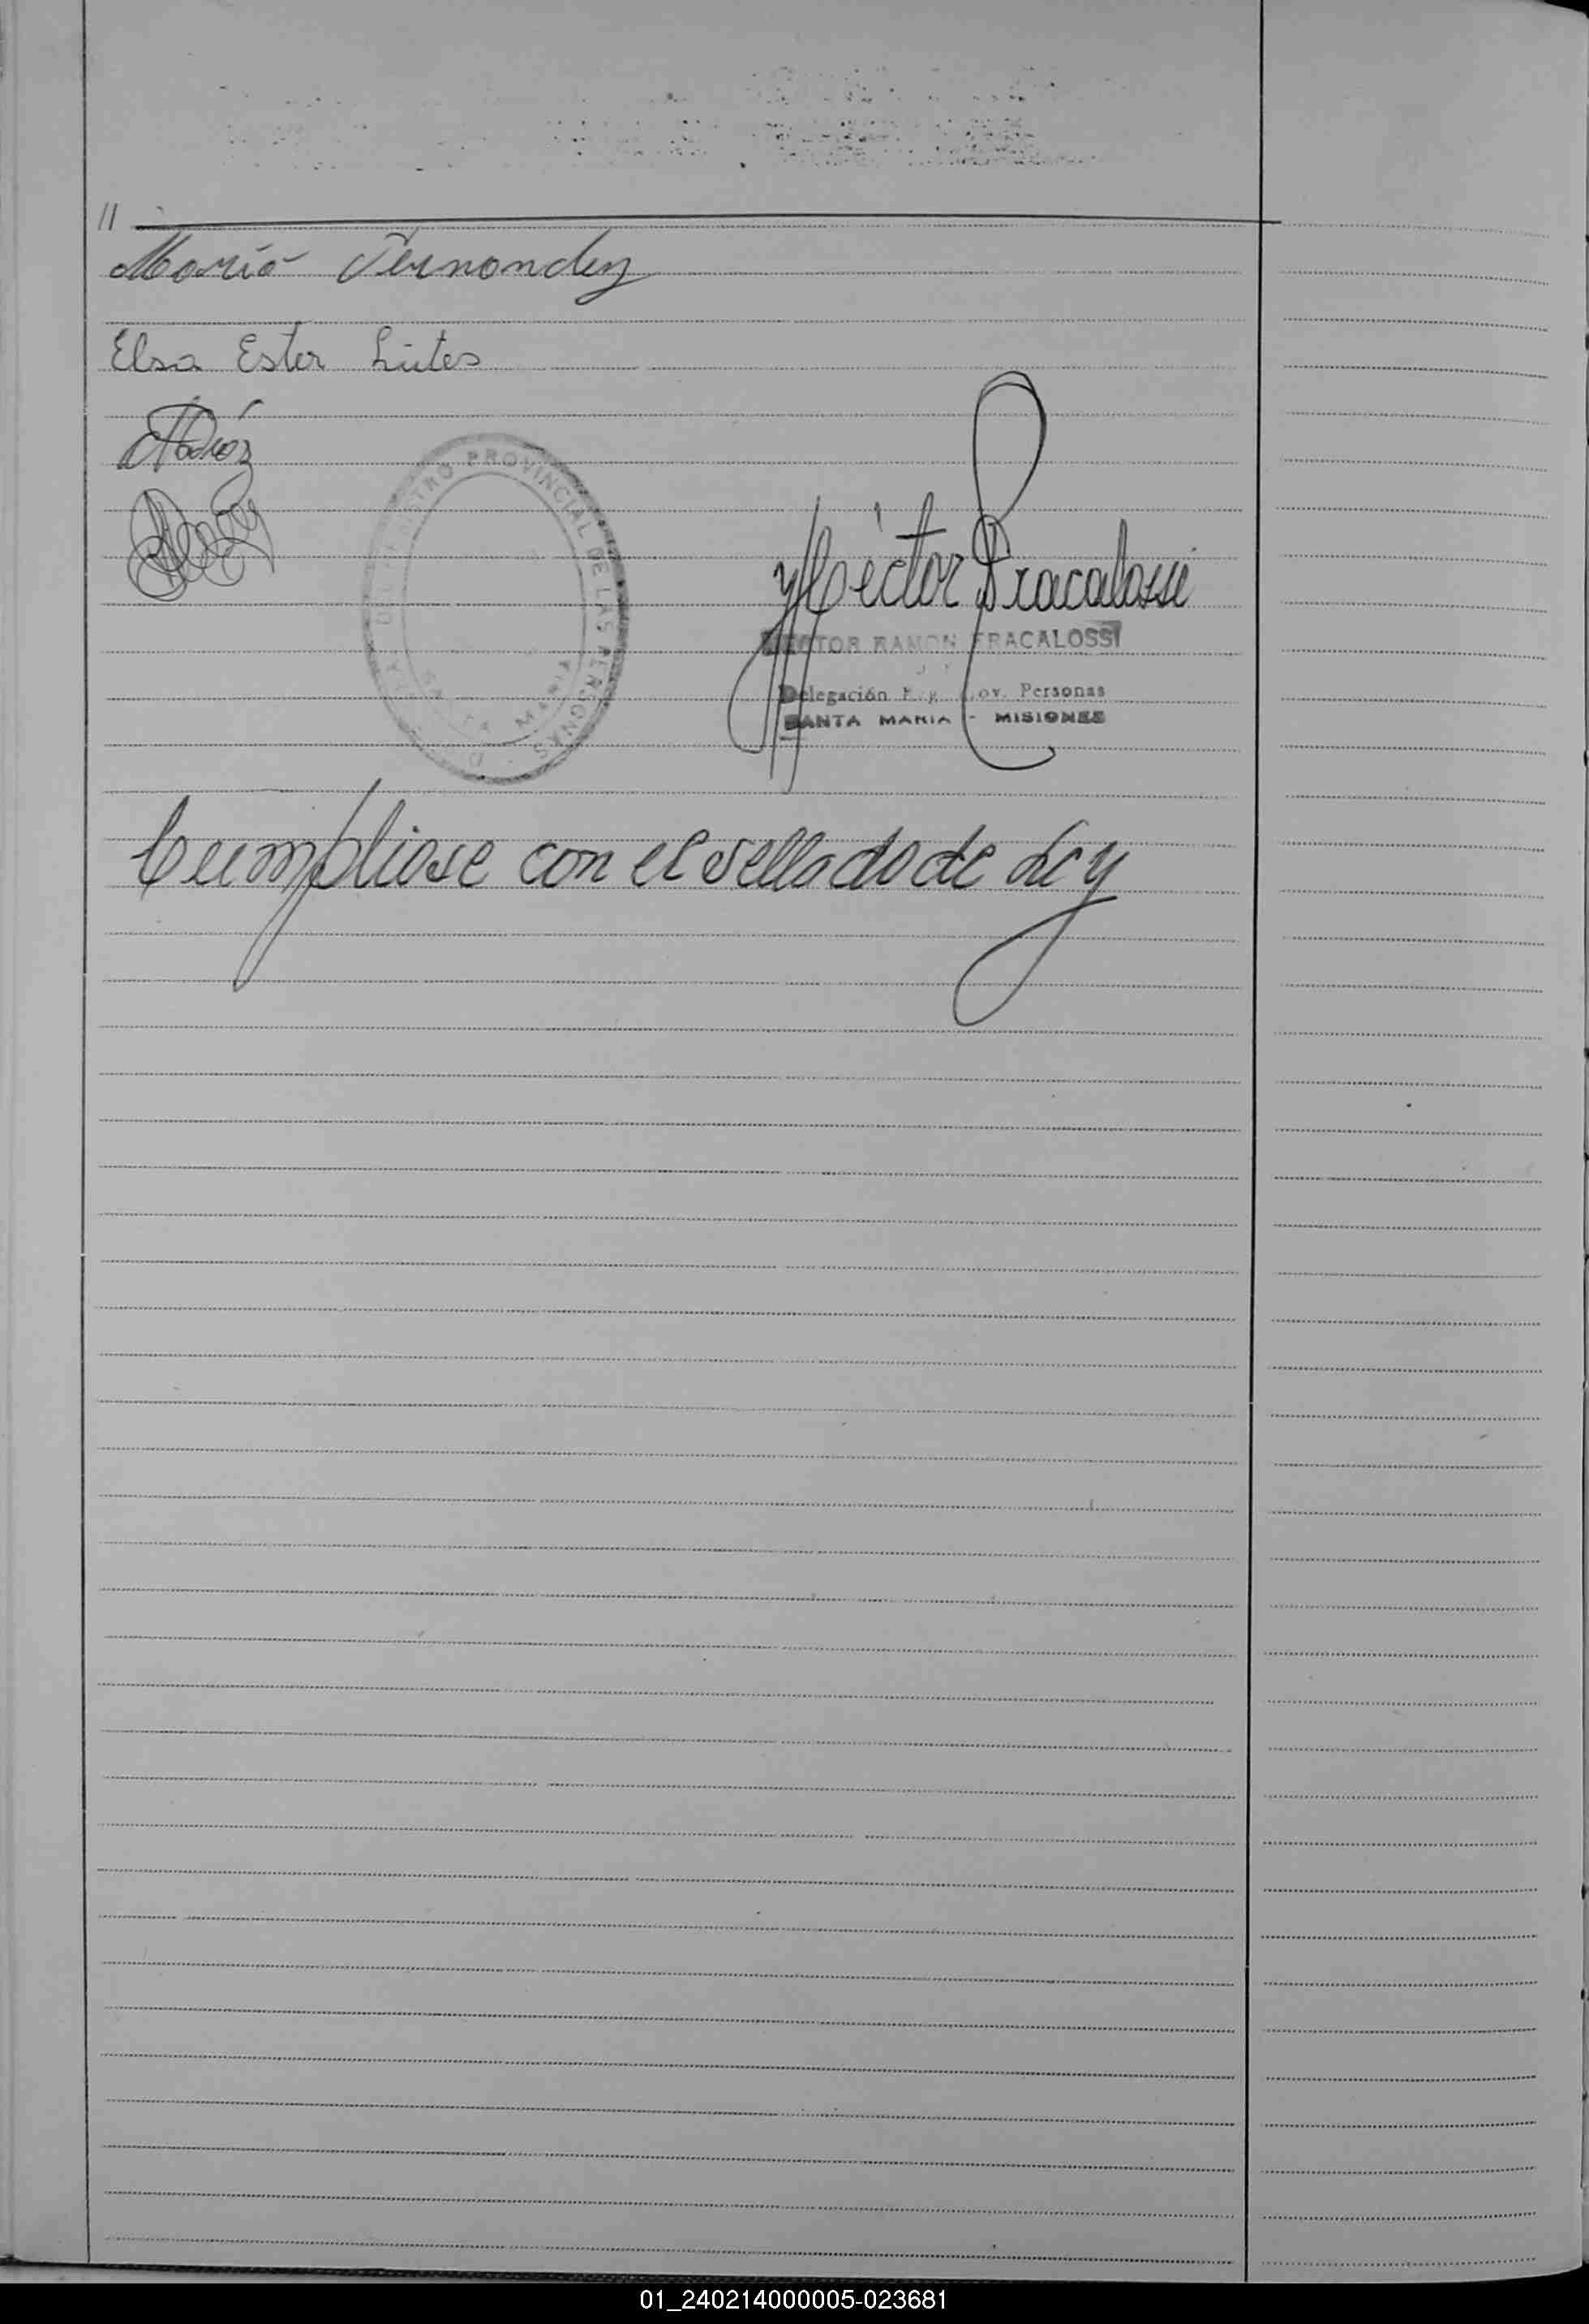 //
María Fernondez
Elsa Ester Lutes
REGISTRO PROVINCIAL DE LAS PERSONAS
SANTA MARIA
Héctor Fracalossi
HECTOR RAMON FRACALOSSI
Delegación Personas
SANTA MARIA - MISIONES
Cumpliose con el sellado de Ley
01_240214000005-023681